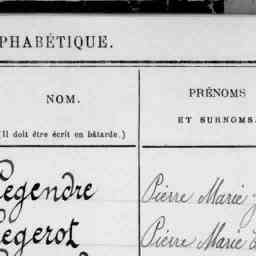 PHABÉTIQUE.
NOM.
(Il doit être écrit en bâtarde.)
PRÉNOMS
ET SURNOMS.
Legendre
Pierre Marie
Legerot
Pierre Marie